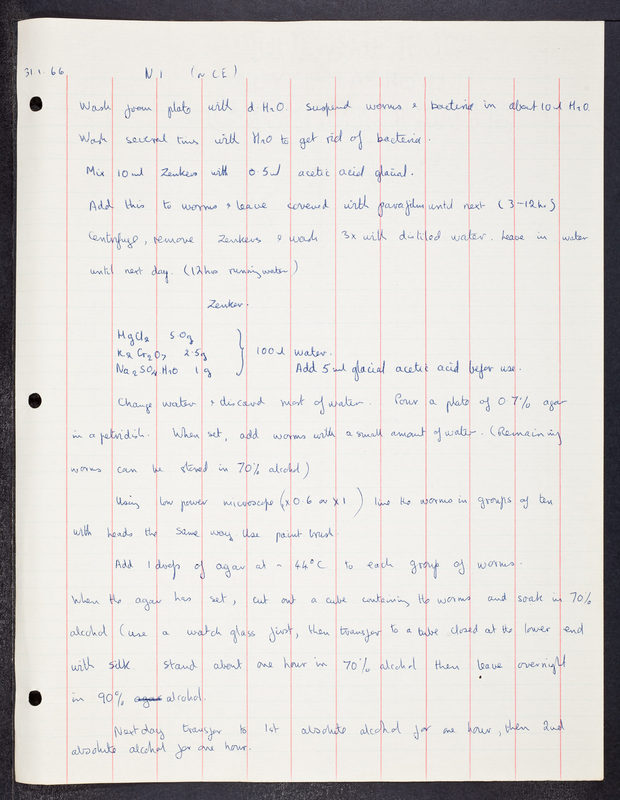 31.1.66 N.1 (or CE)
Wash from plate with d H2O suspend worms & bacteria in about 10 ml H2O.
Wash several times with H2O to get rid of bacteria.
Mix 10 ml Zenkers with 0.5 ml acetic acid glacial.
Add this to worms & leave covered with parafilm until next (3-12 hrs)
Centrifuge, remove Zenkers & wash 3x with distilled water. Leave in water
until next day. (12 hrs running water)
Zenker.
HgCl2 5.0g
K2 Cr2O7 2.5g } 100 ml water.
Na2SO4 H2O 1g Add 5 ml glacial acetic acid before use.
Change water & discard most of water. Pour a plate of 0.7% agar
in a petridish. When set, add worms with a small amount of water. (Remaining
worms can be stored in 70% alcohol)
Using low power microscope (x0.6 or x1) line the worms in groups of ten
with heads the same way. Use paint brush.
Add 1 drop of agar at ~ 44°C to each group of worms.
When the agar has set, cut out a cube containing the worms and soak in 70%
alcohol (use a watch glass first, then transfer to a tube closed at the lower end
with silk stand about one hour in 70% alcohol then leave overnight
in 90% agar alcohol.
Next day transfer to 1st absolute alcohol for one hour, then 2nd
absolute alcohol for one hour.